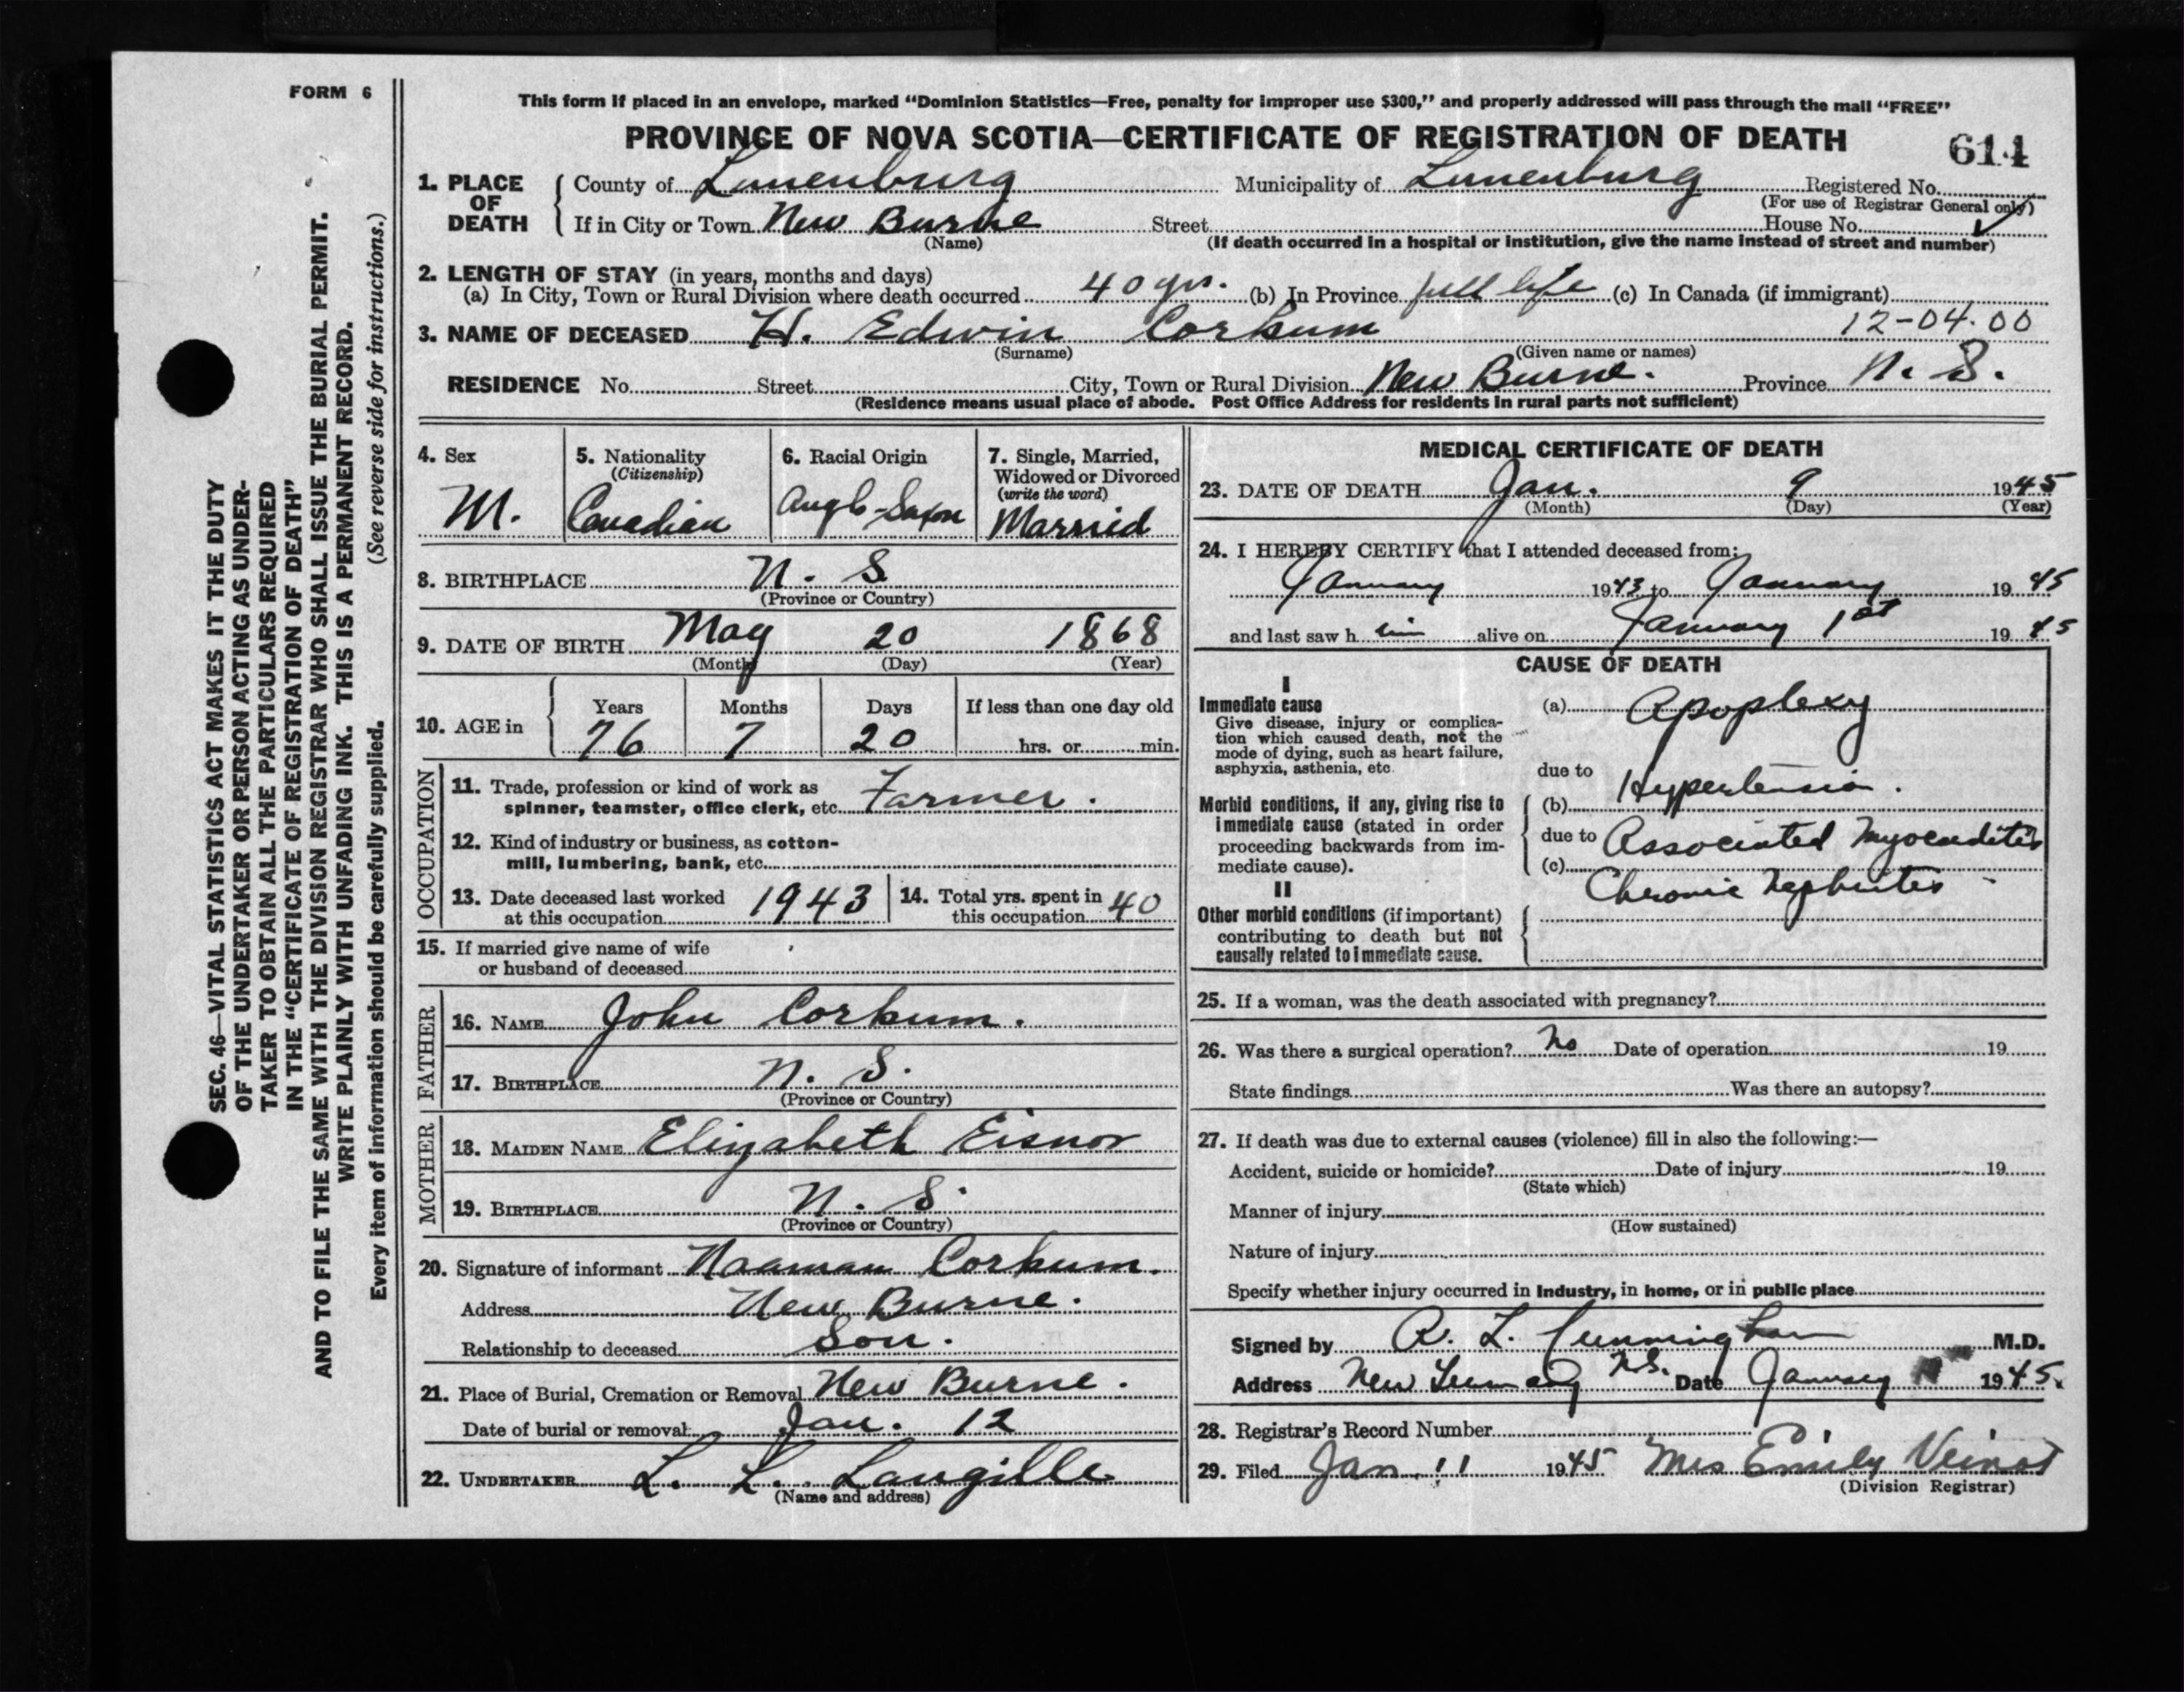 FORM 6
This form if placed in an envelope, marked "Dominion Statistics—Free, penalty for improper use $300," and properly addressed will pass through the mail "FREE"
PROVINCE OF NOVA SCOTIA—CERTIFICATE OF REGISTRATION OF DEATH
611
1. PLACE OF DEATH County of Lunenburg Municipality of Lunenburg Registered No.
(For use of Registrar General only)
If in City or Town New Burne Street House No. ✓
(Name) (If death occurred in a hospital or institution, give the name instead of street and number)
2. LENGTH OF STAY (in years, months and days)
(a) In City, Town or Rural Division where death occurred 40 yrs. (b) In Province full life (c) In Canada (if immigrant)
12-04.00
3. NAME OF DECEASED H. Edwin Corkum
(Surname) (Given name or names)
RESIDENCE No. Street City, Town or Rural Division New Burne. Province N. S.
(Residence means usual place of abode. Post Office Address for residents in rural parts not sufficient)
4. Sex M.
5. Nationality (Citizenship) Canadian
6. Racial Origin Anglo-Saxon
7. Single, Married, Widowed or Divorced (write the word) Married
8. BIRTHPLACE N. S
(Province or Country)
9. DATE OF BIRTH May 20 1868
(Month) (Day) (Year)
10. AGE in Years Months Days If less than one day old
76 7 20 hrs. or min.
OCCUPATION
11. Trade, profession or kind of work as
spinner, teamster, office clerk, etc. Farmer.
12. Kind of industry or business, as cotton-
mill, lumbering, bank, etc.
13. Date deceased last worked
at this occupation 1943
14. Total yrs. spent in
this occupation 40
15. If married give name of wife
or husband of deceased
FATHER
16. NAME John Corkum.
17. BIRTHPLACE N. S.
(Province or Country)
MOTHER
18. MAIDEN NAME Elizabeth Eisnor
19. BIRTHPLACE N. S.
(Province or Country)
20. Signature of informant Naaman Corkum.
Address New Burne.
Relationship to deceased Son.
21. Place of Burial, Cremation or Removal New Burne.
Date of burial or removal Jan. 12
22. UNDERTAKER L. L. Langille
(Name and address)
MEDICAL CERTIFICATE OF DEATH
23. DATE OF DEATH Jan. 9 1945
(Month) (Day) (Year)
24. I HEREBY CERTIFY that I attended deceased from:
January 1943 to January 1945
and last saw h im alive on January 1st 1945
CAUSE OF DEATH
I
Immediate cause
Give disease, injury or complica-
tion which caused death, not the
mode of dying, such as heart failure,
asphyxia, asthenia, etc.
(a) Apoplexy
due to
Morbid conditions, if any, giving rise to
immediate cause (stated in order
proceeding backwards from im-
mediate cause).
(b) Hypertension.
due to Associated Myocarditis
(c) Chronic Nephritis
II
Other morbid conditions (if important)
contributing to death but not
causally related to immediate cause.
25. If a woman, was the death associated with pregnancy?
26. Was there a surgical operation? No Date of operation 19
State findings Was there an autopsy?
27. If death was due to external causes (violence) fill in also the following:—
Accident, suicide or homicide? Date of injury 19
(State which)
Manner of injury
(How sustained)
Nature of injury
Specify whether injury occurred in industry, in home, or in public place
Signed by R. L. Cunningham M.D.
Address New Germany N.S. Date January 1945.
28. Registrar's Record Number
29. Filed Jan. 11 1945 Mrs Emily Veinot
(Division Registrar)
SEC. 46—VITAL STATISTICS ACT MAKES IT THE DUTY
OF THE UNDERTAKER OR PERSON ACTING AS UNDER-
TAKER TO OBTAIN ALL THE PARTICULARS REQUIRED
IN THE "CERTIFICATE OF REGISTRATION OF DEATH"
AND TO FILE THE SAME WITH THE DIVISION REGISTRAR WHO SHALL ISSUE THE BURIAL PERMIT.
WRITE PLAINLY WITH UNFADING INK. THIS IS A PERMANENT RECORD.
Every item of information should be carefully supplied. (See reverse side for instructions.)